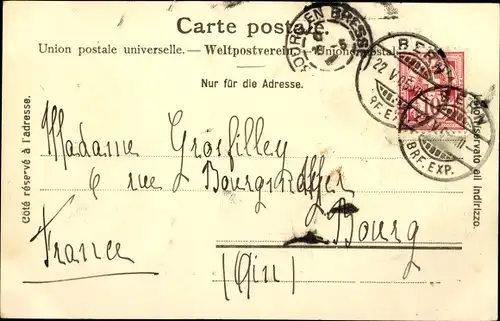 Carte postale.
Union postale universelle. — Weltpostverein. — Unione postale
Nur für die Adresse.
Côté réservé à l'adresse.
Lato riservato all'indirizzo.
BOURG EN BRESSE
BERN
22 V
BRF. EXP.
BERN
BRF. EXP.
10
Madame Grosfilley
6 rue Bourgmayer
Bourg
(Ain)
France